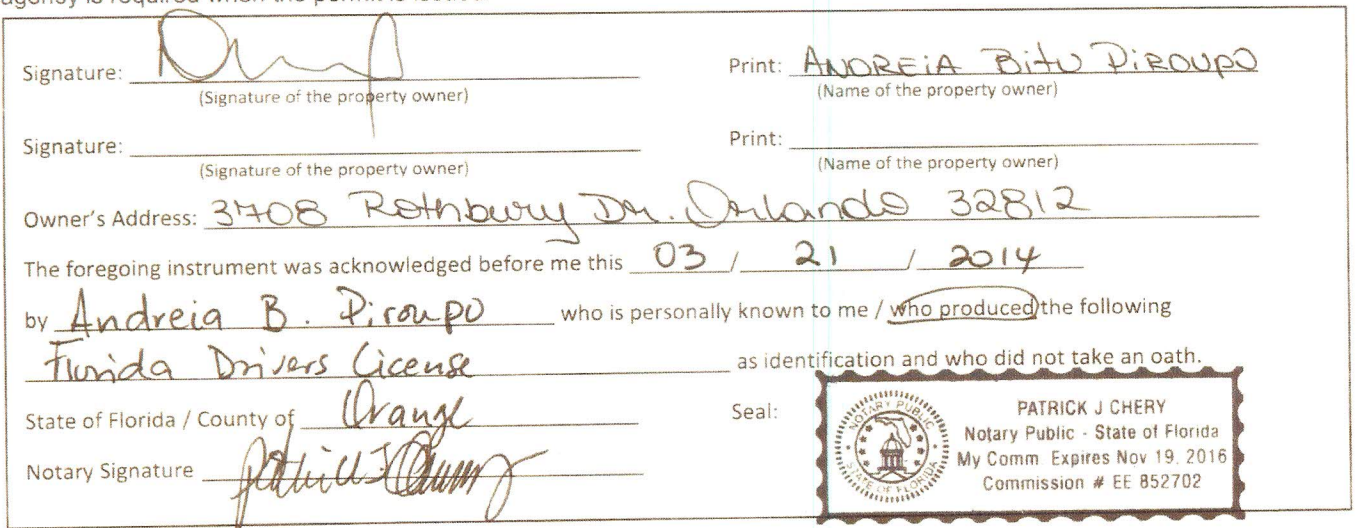 agency is required when the permit is
Signature: Print: ANDREIA BITU PIROUPO
(Signature of the property owner) (Name of the property owner)
Signature: Print:
(Signature of the property owner) (Name of the property owner)
Owner's Address: 3708 Rothbury Dr. Orlando 32812
The foregoing instrument was acknowledged before me this 03 / 21 / 2014
by Andreia B. Piroupo who is personally known to me / who produced the following
Florida Drivers License as identification and who did not take an oath.
State of Florida / County of Orange Seal:
Notary Signature
NOTARY PUBLIC
STATE OF FLORIDA
PATRICK J CHERY
Notary Public - State of Florida
My Comm. Expires Nov 19, 2016
Commission # EE 852702